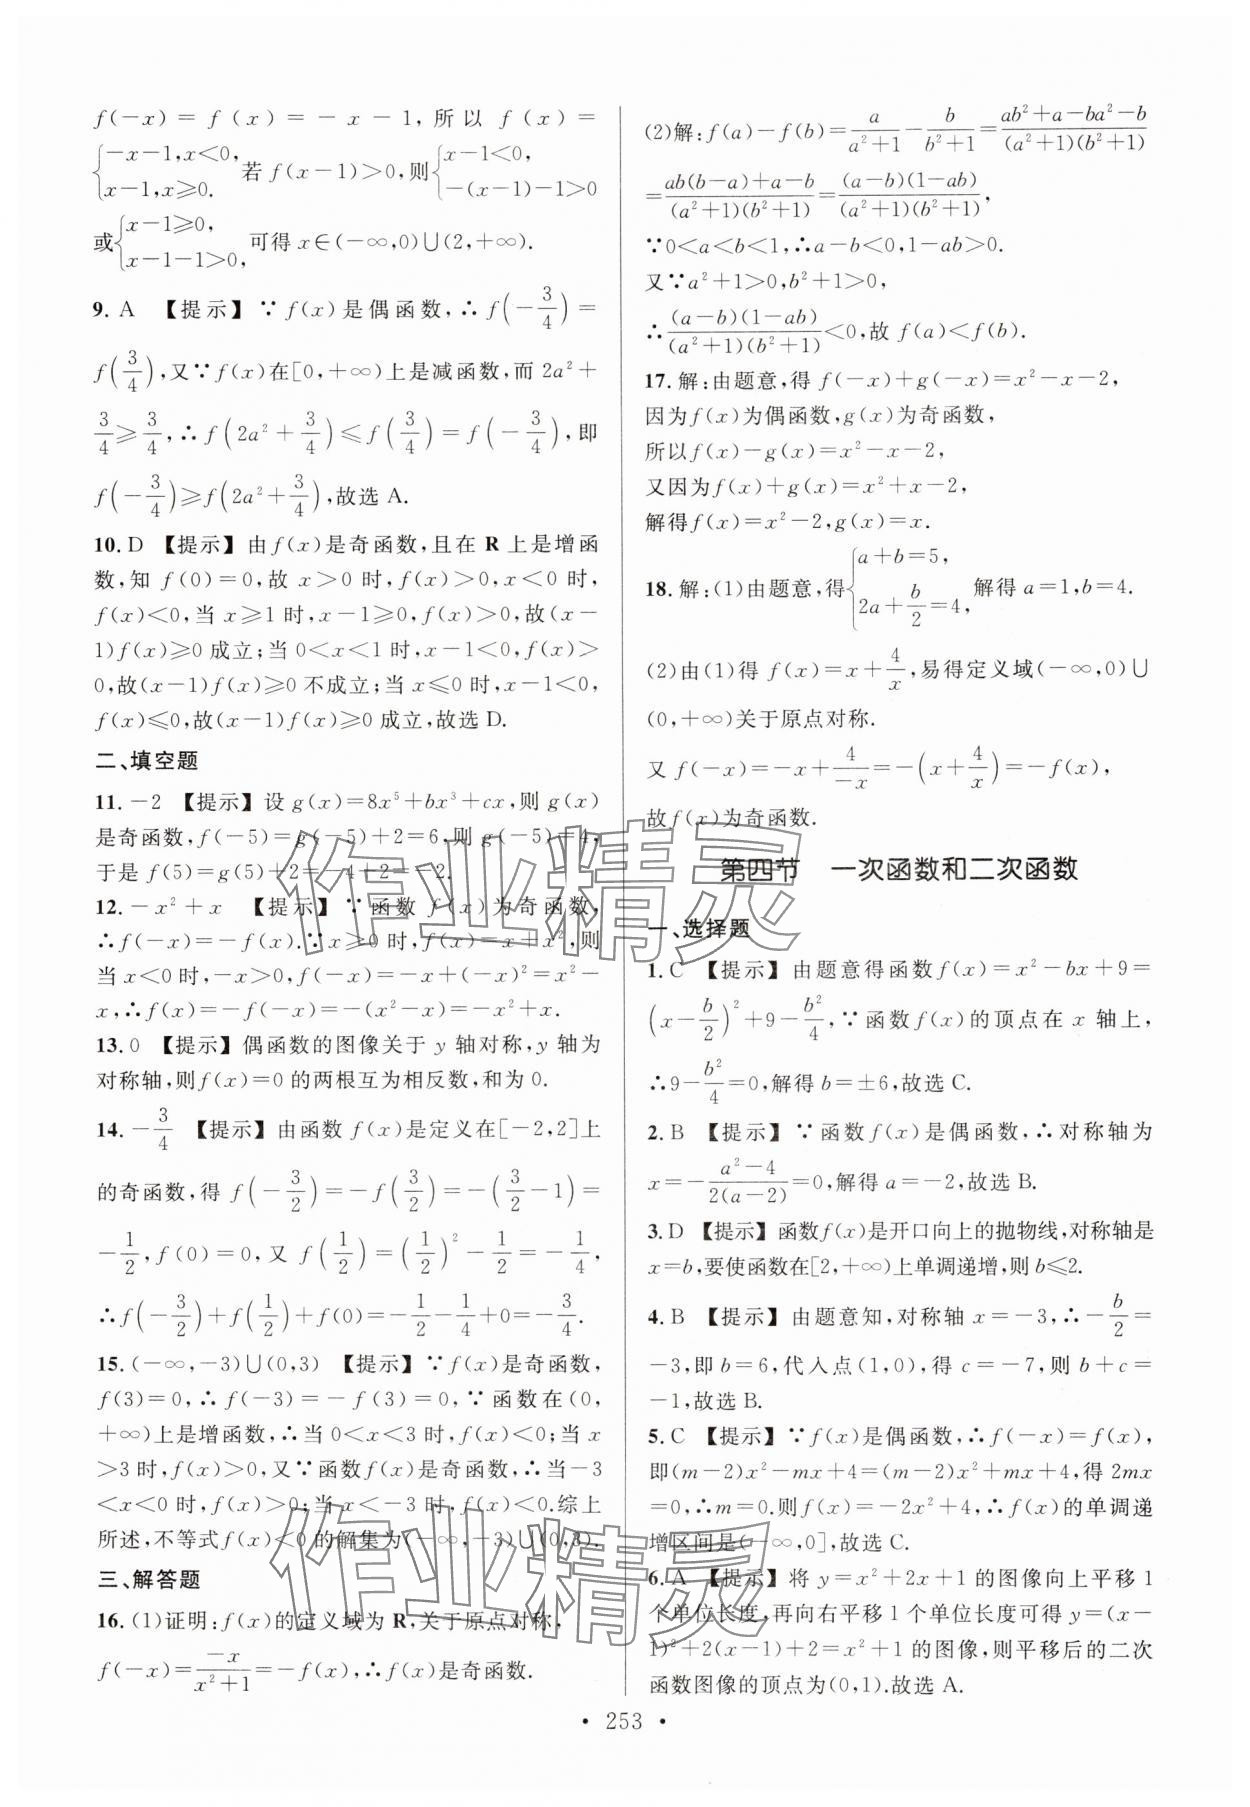 f(-x) = f(x) = -x-1,所以 f(x) =
{-x-1,x<0, x-1,x≥0. 若 f(x-1)>0,则{x-1<0, -(x-1)-1>0
或{x-1≥0, x-1-1>0, 可得 x∈(-∞,0)∪(2,+∞).
9. A 【提示】∵f(x)是偶函数,∴f(-3/4)=
f(3/4),又∵f(x)在[0,+∞)上是减函数,而 2a²+
3/4≥3/4,∴f(2a²+3/4)≤f(3/4)=f(-3/4),即
f(-3/4)≥f(2a²+3/4),故选 A.
10. D 【提示】由 f(x)是奇函数,且在 R 上是增函
数,知 f(0)=0,故 x>0 时,f(x)>0,x<0 时,
f(x)<0,当 x≥1 时,x-1≥0,f(x)>0,故(x-
1)f(x)≥0 成立;当 0<x<1 时,x-1<0,f(x)>
0,故(x-1)f(x)≥0 不成立;当 x≤0 时,x-1<0,
f(x)≤0,故(x-1)f(x)≥0 成立,故选 D.
二、填空题
11. -2 【提示】设 g(x)=8x⁵+bx³+cx,则 g(x)
是奇函数,f(-5)=g(-5)+2=6,则 g(-5)=4,
于是 f(5)=g(5)+2=-4+2=-2.
12. -x²+x 【提示】∵函数 f(x)为奇函数,
∴f(-x)=-f(x).∵x≥0 时,f(x)=x+x²,则
当 x<0 时,-x>0,f(-x)=-x+(-x)²=x²-
x,∴f(x)=-f(-x)=-(x²-x)=-x²+x.
13. 0 【提示】偶函数的图像关于 y 轴对称,y 轴为
对称轴,则 f(x)=0 的两根互为相反数,和为 0.
14. -3/4 【提示】由函数 f(x)是定义在[-2,2]上
的奇函数,得 f(-3/2)=-f(3/2)=-(3/2-1)=
-1/2,f(0)=0,又 f(1/2)=(1/2)²-1/2=-1/4,
∴f(-3/2)+f(1/2)+f(0)=-1/2-1/4+0=-3/4.
15. (-∞,-3)∪(0,3) 【提示】∵f(x)是奇函数,
f(3)=0,∴f(-3)=-f(3)=0,∵函数在(0,
+∞)上是增函数,∴当 0<x<3 时,f(x)<0;当 x
>3 时,f(x)>0,又∵函数 f(x)是奇函数,∴当-3
<x<0 时,f(x)>0;当 x<-3 时,f(x)<0.综上
所述,不等式 f(x)<0 的解集为(-∞,-3)∪(0,3).
三、解答题
16. (1)证明:f(x)的定义域为 R,关于原点对称,
f(-x)=-x/(x²+1)=-f(x),∴f(x)是奇函数.
(2)解:f(a)-f(b)=a/(a²+1)-b/(b²+1)=(ab²+a-ba²-b)/((a²+1)(b²+1))
=(ab(b-a)+a-b)/((a²+1)(b²+1))=((a-b)(1-ab))/((a²+1)(b²+1)),
∵0<a<b<1,∴a-b<0,1-ab>0.
又∵a²+1>0,b²+1>0,
∴((a-b)(1-ab))/((a²+1)(b²+1))<0,故 f(a)<f(b).
17. 解:由题意,得 f(-x)+g(-x)=x²-x-2,
因为 f(x)为偶函数,g(x)为奇函数,
所以 f(x)-g(x)=x²-x-2,
又因为 f(x)+g(x)=x²+x-2,
解得 f(x)=x²-2,g(x)=x.
18. 解:(1)由题意,得{a+b=5, 2a+b/2=4, 解得 a=1,b=4.
(2)由(1)得 f(x)=x+4/x,易得定义域(-∞,0)∪
(0,+∞)关于原点对称.
又 f(-x)=-x+4/-x=-(x+4/x)=-f(x),
故 f(x)为奇函数.
第四节 一次函数和二次函数
一、选择题
1. C 【提示】由题意得函数 f(x)=x²-bx+9=
(x-b/2)²+9-b²/4,∵函数 f(x)的顶点在 x 轴上,
∴9-b²/4=0,解得 b=±6,故选 C.
2. B 【提示】∵函数 f(x)是偶函数,∴对称轴为
x=-(a²-4)/(2(a-2))=0,解得 a=-2,故选 B.
3. D 【提示】函数 f(x)是开口向上的抛物线,对称轴是
x=b,要使函数在[2,+∞)上单调递增,则 b≤2.
4. B 【提示】由题意知,对称轴 x=-3,∴-b/2=
-3,即 b=6,代入点(1,0),得 c=-7,则 b+c=
-1,故选 B.
5. C 【提示】∵f(x)是偶函数,∴f(-x)=f(x),
即(m-2)x²-mx+4=(m-2)x²+mx+4,得 2mx
=0,∴m=0.则 f(x)=-2x²+4,∴f(x)的单调递
增区间是(-∞,0],故选 C.
6. A 【提示】将 y=x²+2x+1 的图像向上平移 1
个单位长度,再向右平移 1 个单位长度可得 y=(x-
1)²+2(x-1)+2=x²+1 的图像,则平移后的二次
函数图像的顶点为(0,1).故选 A.
• 253 •
作业精灵
作业精灵